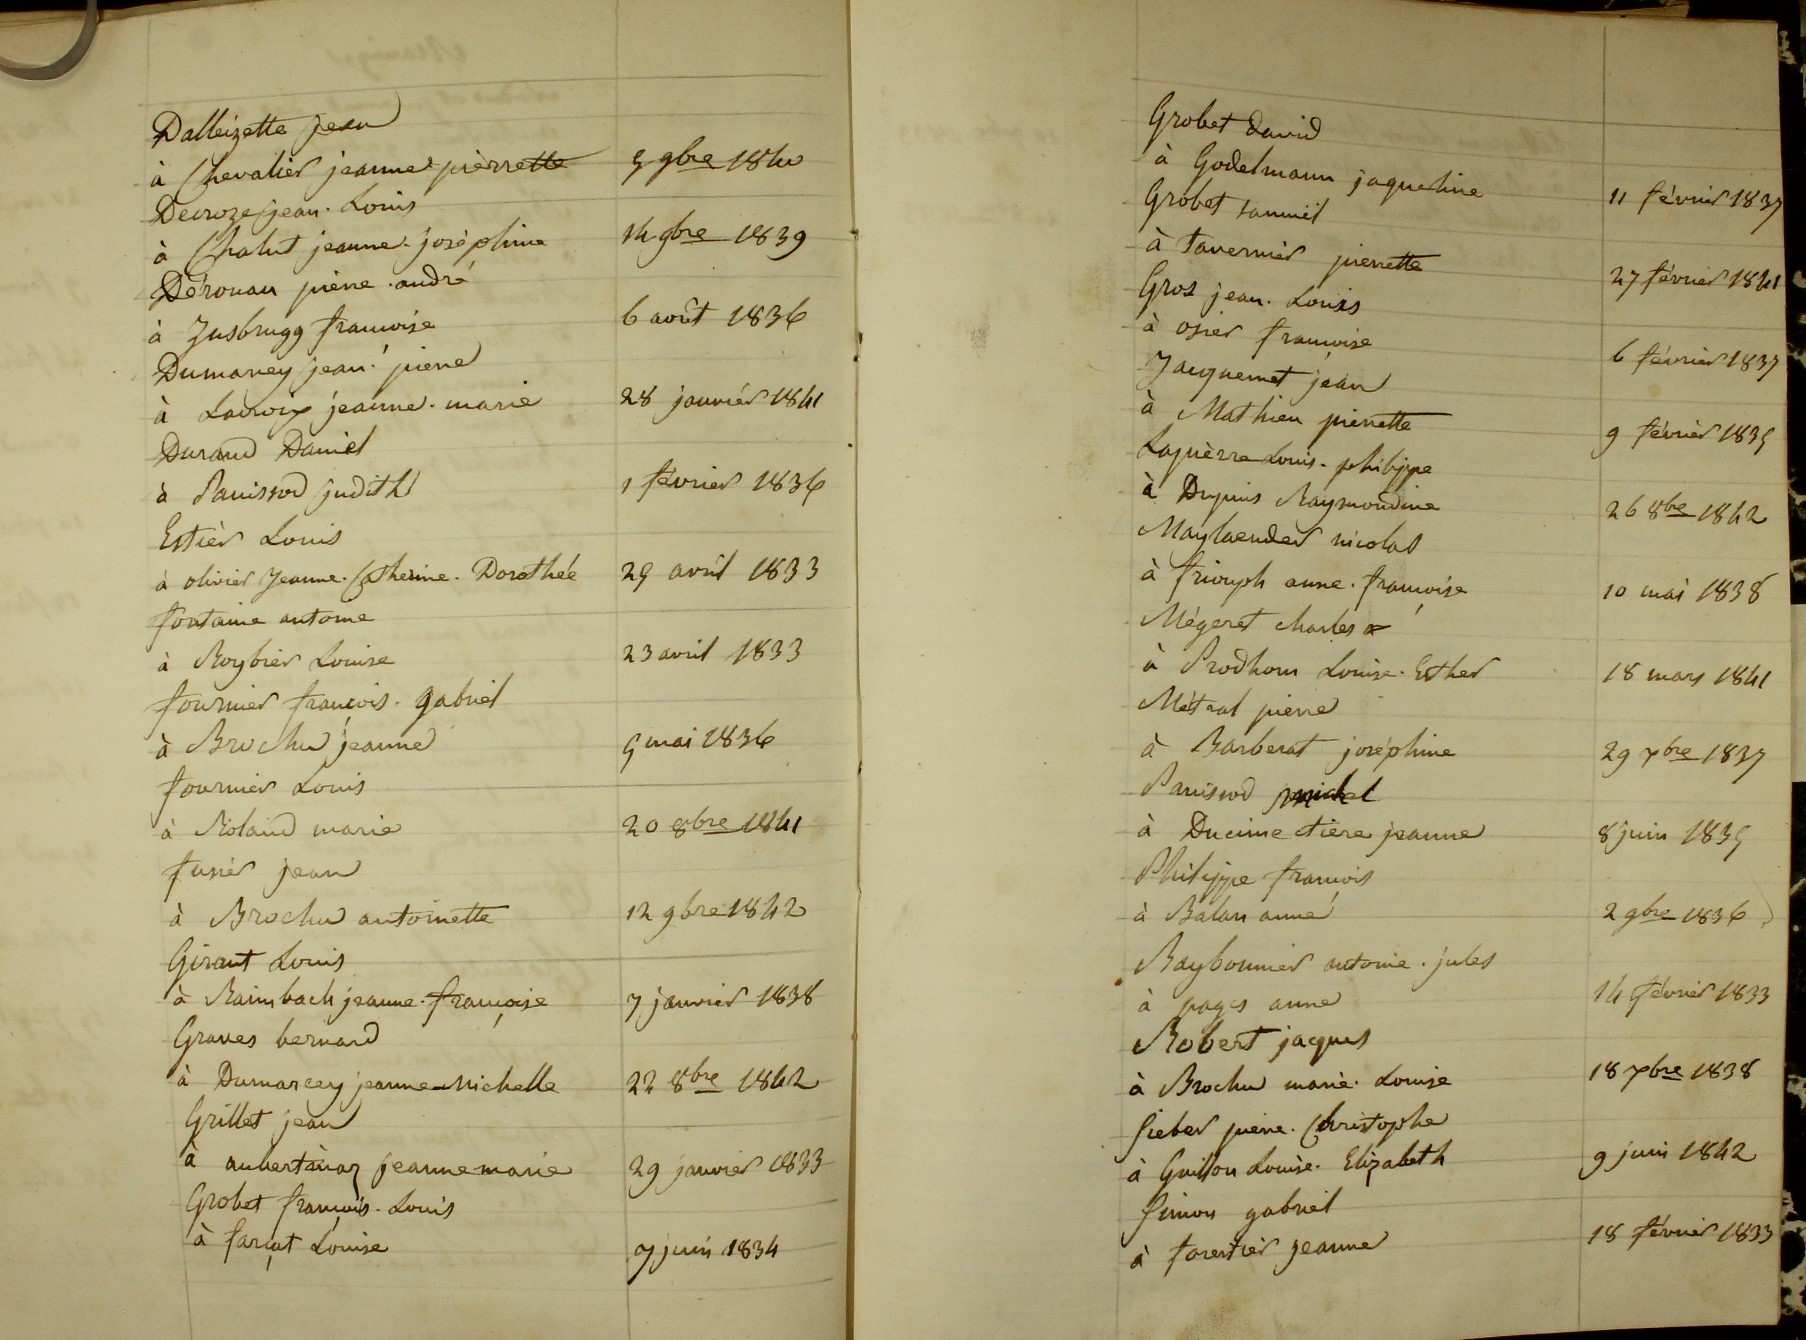 Dalleizette jean
à Chevalier jeanne pièrrette 5 9bre 1840
Decroze jean. Louis
à Chalut jeanne. joséphine 14 9bre 1839
Dérouan pierre. andré
à Jusbrugg françoise 6 août 1836
Dumarey jean. pierre
à Lacroix jeanne. marie 28 janvier 1841
Durand Daniel
à Panissod judith 1 février 1836
Estièr Louis
à olivier Jeanne. Catherine. Dorothée 29 avril 1833
fontaine antoine
à Roybier Louise 23 avril 1833
fournier françois. gabriel
à Brochu jeanne 5 mai 1836
fournier Louis
à Roland marie 20 8bre 1841
fusier jean
à Brochu antoinette 12 9bre 1842
Giraut Louis
à Raimbach jeanne. françoise 7 janvier 1838
Graves bernard
à Dumarcey jeanne Michelle 22 8bre 1842
Grillet jean
à jeanne marie 29 janvier 1833
Grobet françois. Louis
à farçat Louise 7 juin 1834
Grobet David
à Godelmann jaqueline 11 février 1837
Grobet samuël
à tavernier pierrette 27 février 1841
Gros jean. Louis
à osier françoise 6 février 1837
Jacquemet jean
à Mathieu pierrette 9 février 1835
Laguèrre Louis. philippe
à Dupuis Raymondine 26 8bre 1842
Maylaender nicolas
à friouph anne. françoise 10 mai 1838
Mégeret charles
à Prodhom Louise. Esther 18 mars 1841
Métral pierre
à Barberat joséphine 29 7bre 1837
Panissod michel
à Ducimetière jeanne 8 juin 1835
Philippe françois
à Balan anne 2 9bre 1836
Raybonnier antoine. jules
à pages anne 14 février 1833
Robert jacques
à Brochu marie. Louise 18 7bre 1838
sieber pierre. Christophe
à Guillon Louise. Elizabeth 9 juin 1842
simon gabriel
à forestier jeanne 18 février 1833